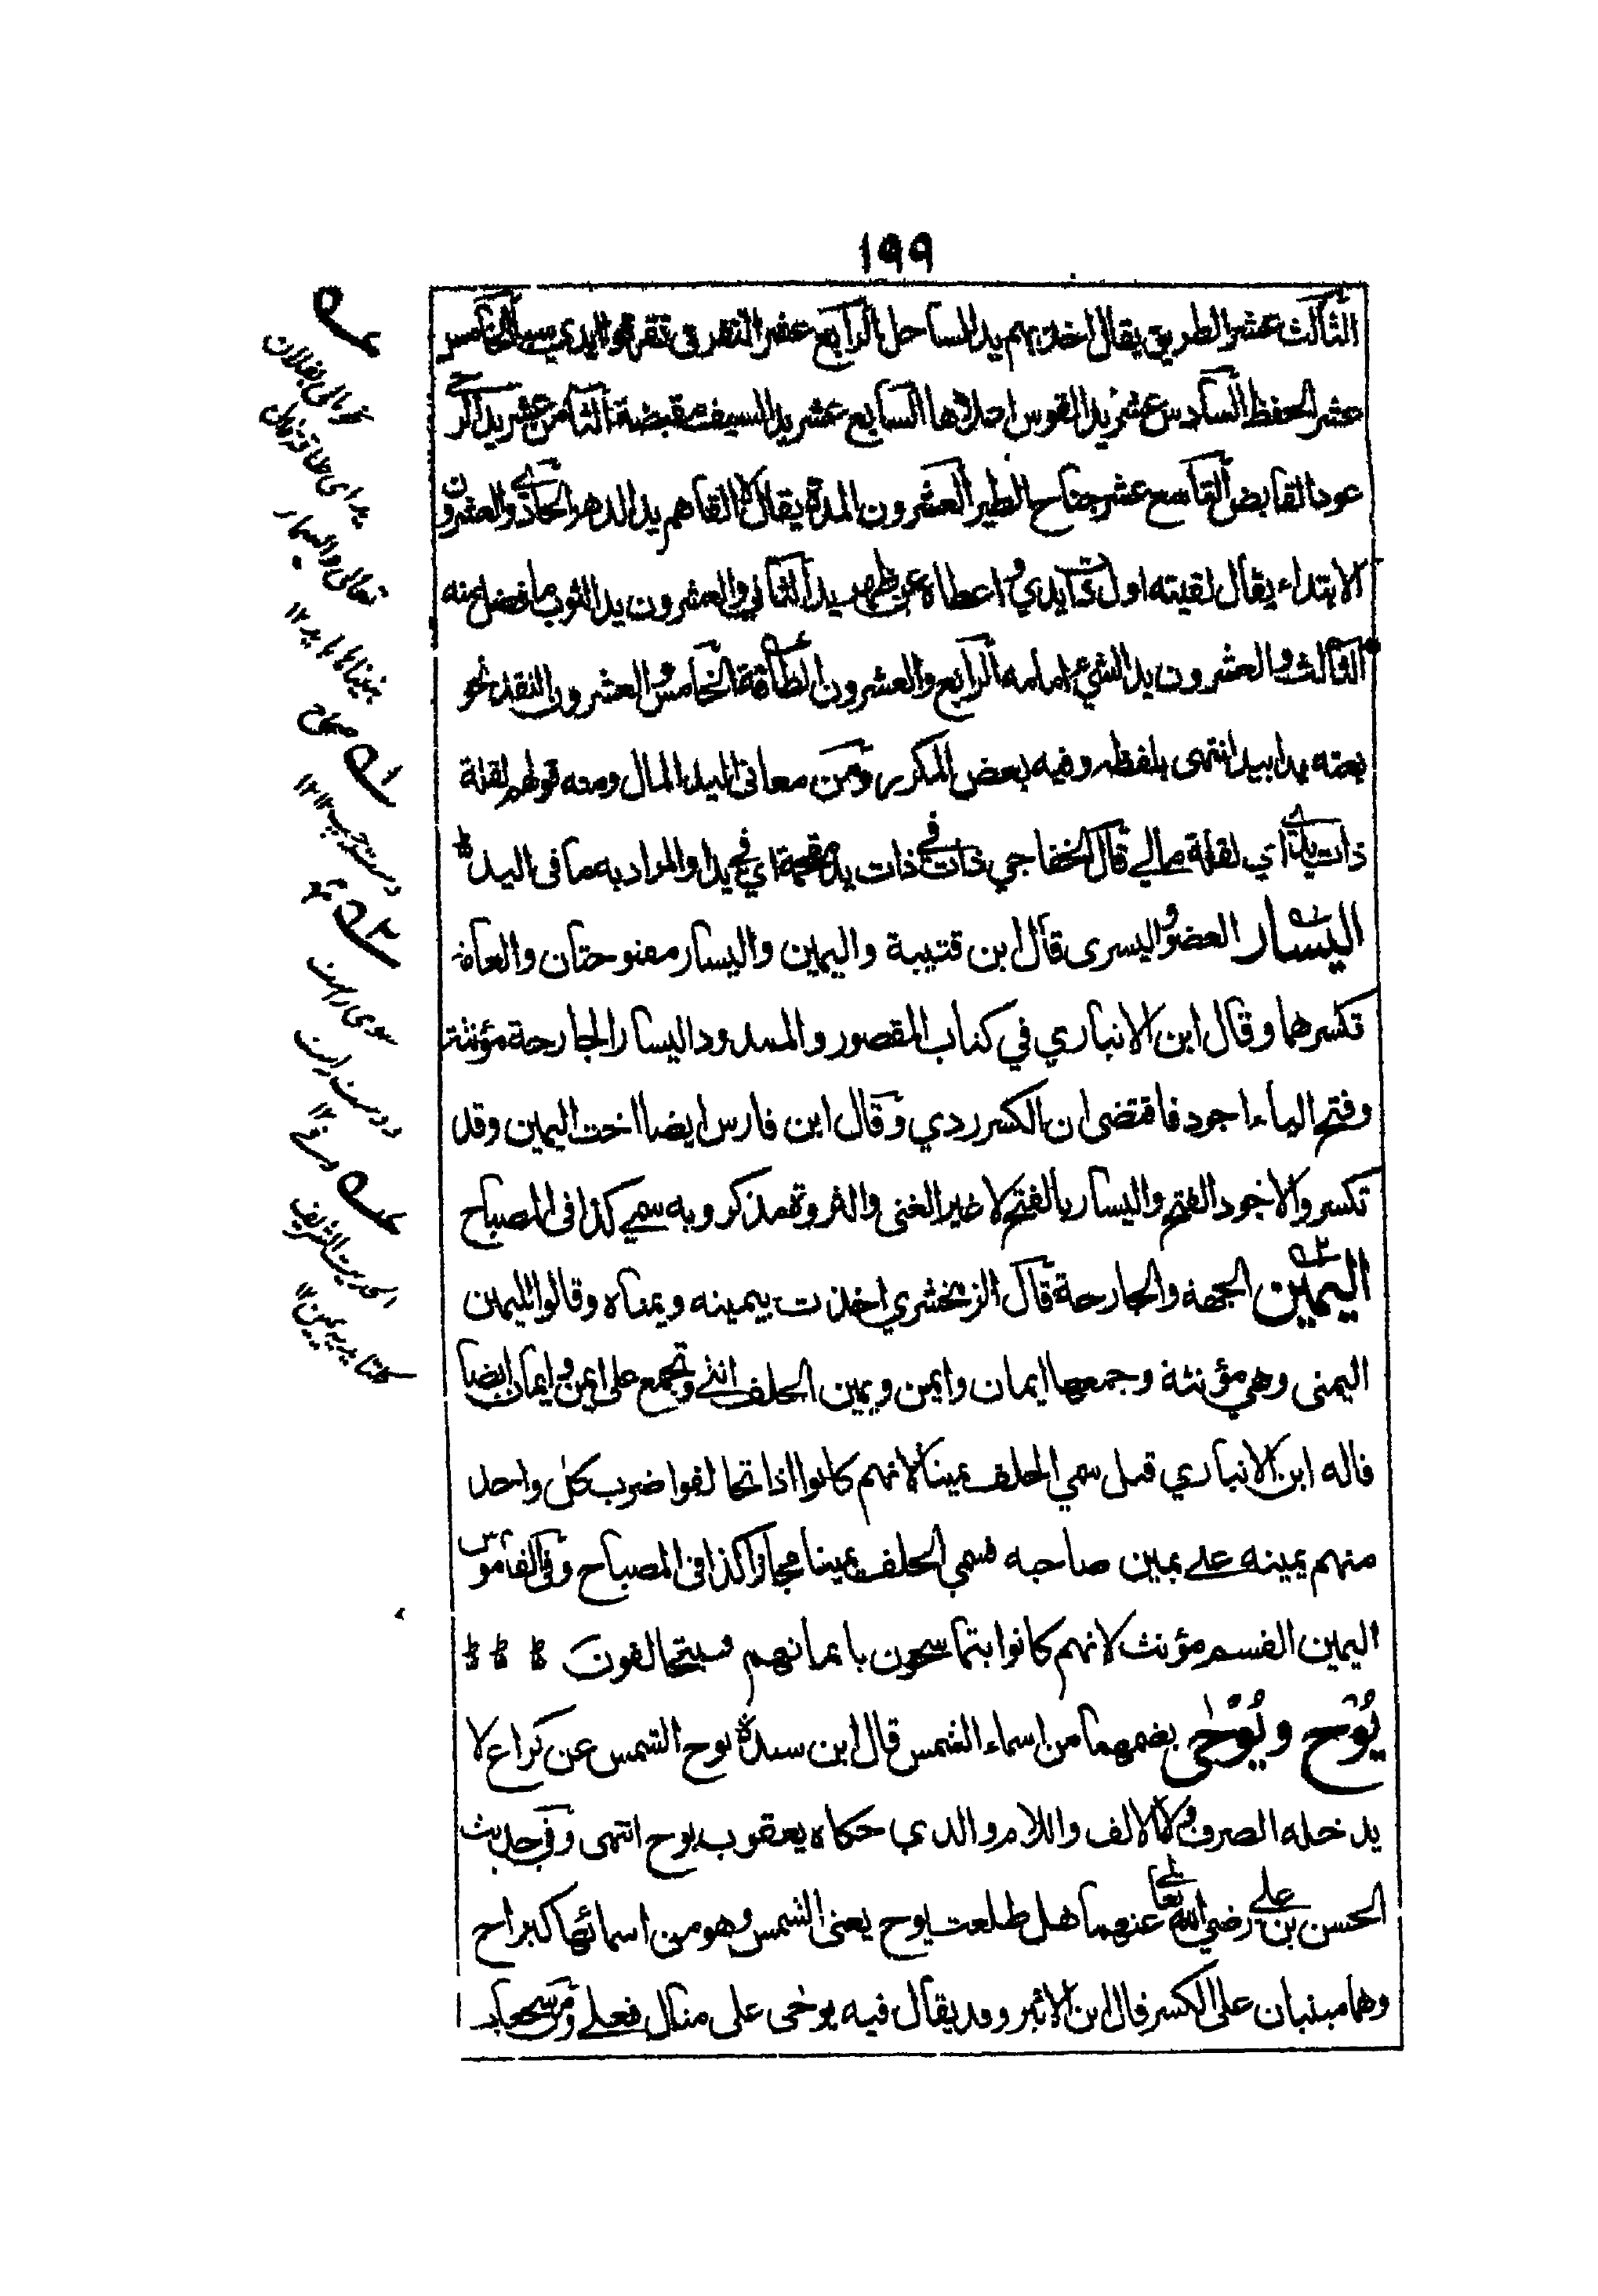 ١٩٩
الثالث عشر الطريق يقال اخذ بهم يد الساحل الرابع عشر التفرق تفرقوا ايدي سبا الخامس
عشر الحفظ السادس عشر يد القوس اعلاها السابع عشر يد السيف مقبضه الثامن عشر يد الرحى
عود القابض التاسع عشر جناح الطير العشرون المدة يقال لا القاهم يد الدهر الحادي والعشرون
الابتداء يقال لقيته اول ذات يدي و اعطاه عن ظهر يد الثاني والعشرون يد الثوب ما فضل منه
الثالث والعشرون يد الشيء امامه الرابع والعشرون الطاقة الخامس و العشرون النقد نحو
بعته يدا بيد انتهى بلفظه وفيه بعض المكرر ومن معاني اليد المال ومنه قولهم لقلة
ذات يدي اي لقلة مالي قال الخفاجي ذات في ذات يد مقحمة اي في يد او المراد به ما في اليد
اليسار العضو اليسرى قال ابن قتيبة واليمين واليسار مفتوحتان والعامة
تكسرهما وقال ابن الانباري في كتاب المقصور والممدود اليسار الجارحة مؤنثة
وفتح الياء اجود فاقتضى ان الكسر ردي وقال ابن فارس ايضا اخت اليمين وقد
تكسر والاجود الفتح واليسار بالفتح لا غير الغنى والثروة مذكر وبه سمي كذا في المصباح
اليمين الجهة والجارحة قال الزمخشري اخذت بيمينه ويمناه وقالوا لليمين
اليمنى وهي مؤنثة وجمعها ايمان وايمن ويمين الحلف انثى وتجمع على ايمن و ايمان ايضا
قاله ابن الانباري قيل سمي الحلف يمينا لانهم كانوا اذا تحالفوا ضرب كل واحد
منهم يمينه على يمين صاحبه فسمي الحلف يمينا مجازا كذا في المصباح وفي القاموس
اليمين القسم مؤنث لانهم كانوا يتماسحون بايمانهم فيتحالفون
يُوْح ويُوْحٰى بضمهما من اسماء الشمس قال ابن سيدة يوح الشمس عن كراع لا
يدخله الصرف ولا الالف واللام والذي حكاه يعقوب يوح انتهى وفي حديث
الحسن بن علي رضي الله تعالى عنهما هل طلعت يوح يعني الشمس وهو من اسمائها كبراح
وهما مبنيان على الكسر قال ابن الاثير وقد يقال فيه يوحى على مثال فعلى ومن سجعات